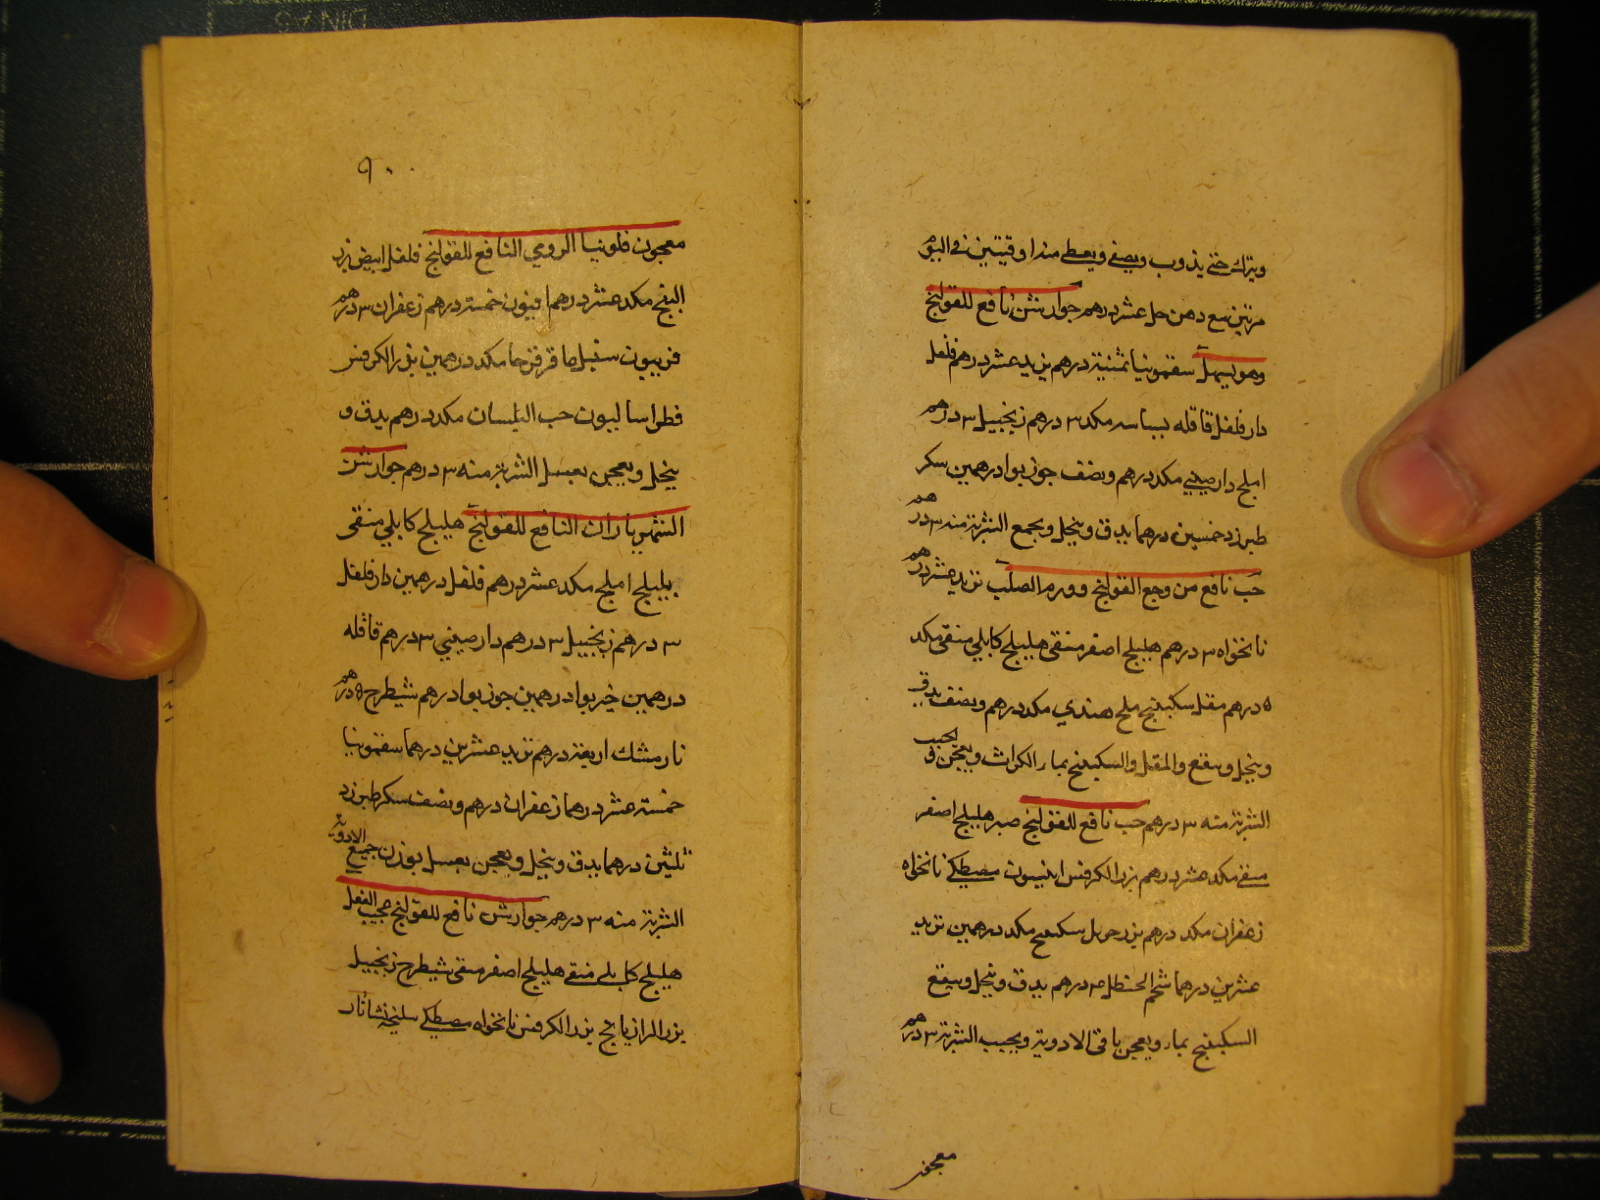 ويترك حتى يذوب ويصفى ويعطى منه اوقيتين فى اليوم
مرتين مع دهن حل عشر درهم جوارشن نافع للقولنج
وهو يسهل سقمونيا ثمنية درهم تربد عشر درهم فلفل
دار فلفل قاقله بسباسه مكد ٣ درهم زنجبيل ٣ درهم
املج دارصيني مكد درهم ونصف جوز بوا درهمين سكر
طبرزد خمسين درهما يدق وينخل ويجمع الشربة منه ٣ درهم
حب نافع من وجع القولنج وورم الصلب تربد عشر درهم
نانخواه ٣ درهم هليلج اصفر منقى هليلج كابلي منقى مكد
٥ درهم مقل سكبينج ملح هندي مكد درهم ونصف يدق
وينخل وينقع والمقل والسكبينج بماء الكراث ويعجن و يحبب
الشربة منه ٣ درهم حب نافع للقولنج صبر هليلج اصفر
منقى مكد عشر درهم بزر الكرفس انيسون مصطكى نانخواه
زعفران مكد درهم بزر حرمل سكبينج مكد درهمين تربد
عشرين درهما شحم الحنظل ٤ درهم يدق وينخل وينقع
السكبينج بماء ويعجن باقى الادوية ويحبب الشربة ٣ درهم
معجون
٩٠
معجون فلونيا الرومي النافع للقولنج فلفل ابيض بزر
البنج مكد عشر درهم افيون خمسة درهم زعفران ٣ درهم
فربيون سنبل عاقرقرحا مكد درهمين بزر الكرفس
فطراساليون حب البلسان مكد درهم يدق و
ينخل ويعجن بعسل الشربة منه ٣ درهم جوارشن
الشهرياران النافع للقولنج هليلج كابلي منقى
بليلج املج مكد عشر درهم فلفل درهمين دار فلفل
٣ درهم زنجبيل ٣ درهم دارصيني ٣ درهم قاقله
درهمين خيربوا درهمين جوز بوا درهم شيطرج ٥ درهم
نارمشك اربعة درهم تربد عشرين درهما سقمونيا
خمسة عشر درهما زعفران درهم ونصف سكر طبرزد
ثلثين درهما يدق وينخل ويعجن بعسل بوزن جميع الادوية
الشربة منه ٣ درهم جوارش نافع للقولنج عجيب الفعل
هليلج كابلى منقى هليلج اصفر منقى شيطرج زنجبيل
بزر الرازيانج بزر الكرفس نانخواه مصطكى سليخة